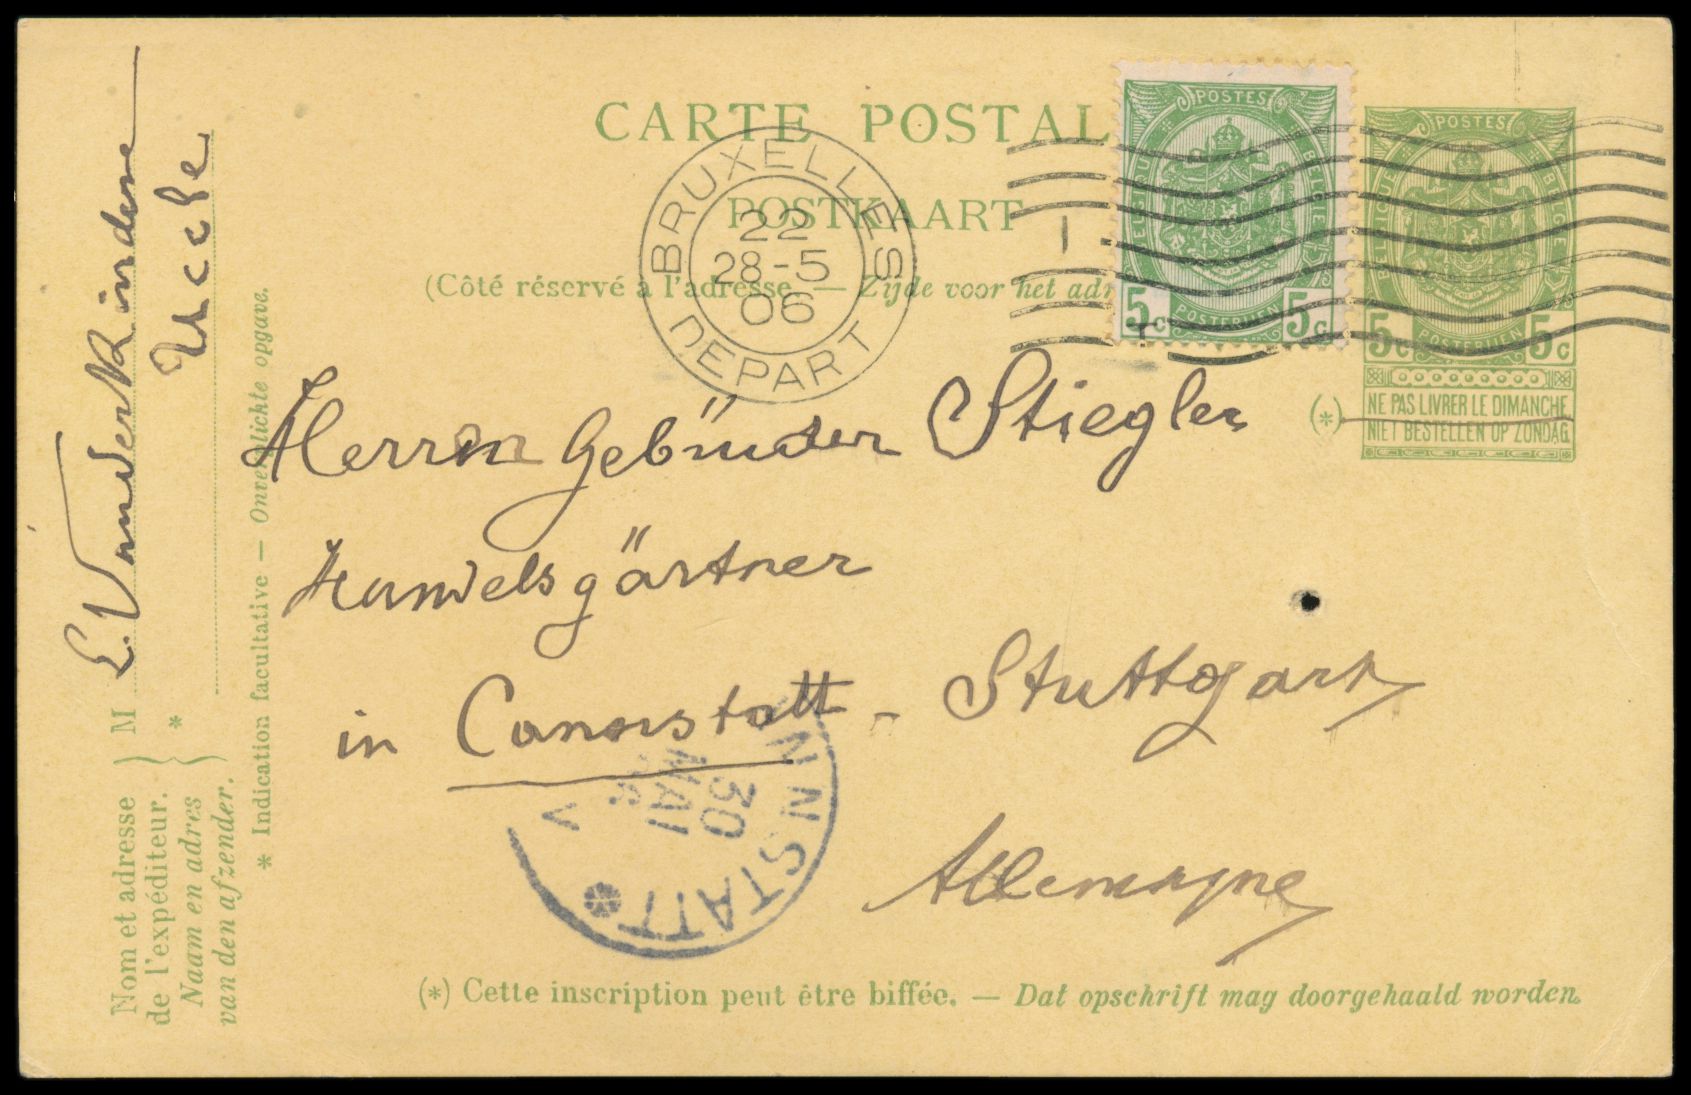 CARTE POSTAL
POSTKAART
(Côté réservé à l'adresse. — Zijde voor het adr
BRUXELLES
22
28-5
06
DEPART
POSTES
BELGIQUE
BELGIË
5c POSTERIJEN 5c
POSTES
BELGIQUE
BELGIË
5c POSTERIJEN 5c
(*)
NE PAS LIVRER LE DIMANCHE
NIET BESTELLEN OP ZONDAG
Herren Gebrüder Stiegler
Handelsgärtner
in Cannstatt - Stuttgart
Allemagne
NNSTATT
30
MAI
V
(*) Cette inscription peut être biffée. — Dat opschrift mag doorgehaald worden.
Nom et adresse
de l'expéditeur.
Naam en adres
van den afzender.
M E. Vanderkindere
* Uccle
* Indication facultative — Onverplichte opgave.